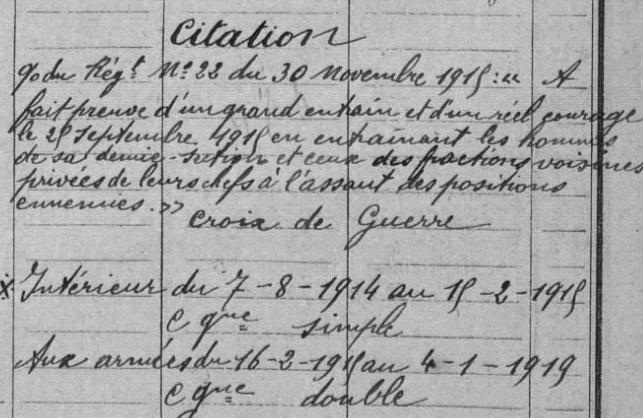 Citation
O/ du Régt No 22 du 30 novembre 1915 : « A
fait preuve d'un grand entrain et d'un réel courage
le 25 Septembre 1915 en entraînant les hommes
de sa demie-section et ceux des fractions voisines
privées de leurs chefs à l'assaut des positions
ennemies. »
Croix de Guerre
x Intérieur du 7-8-1914 au 15-2-1915
C gne simple
Aux armées du 16-2-1915 au 4-1-1919
C gne double